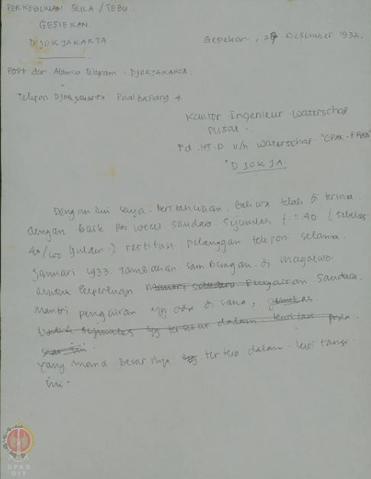 PERKEBUNAN SEILA / TEBU
GESIEKAN
DJOKJAKARTA
Gesiekan, 29 Desember 1932.
Post dan Alamat Telegram : DJOKJAKARTA
Telepon Djokjakarta
Kantor Ingenieur Waterschap
Pusat
v/h Waterschap "OPAK-PROGO"
DJOKJA.
Dengan ini saya beritahukan, bahwa telah di terima
dengan baik per wesel saudara sejumlah f
gulden) restitusi pelanggan telepon selama
Januari 1933 Tambahan sambungan di Magoewo
untuk keperluan Pengairan Saudara
Mantri pengairan yg ada di sana,
yang mana besarnya tertera dalam kwitansi
ini.
DPAD
DIY